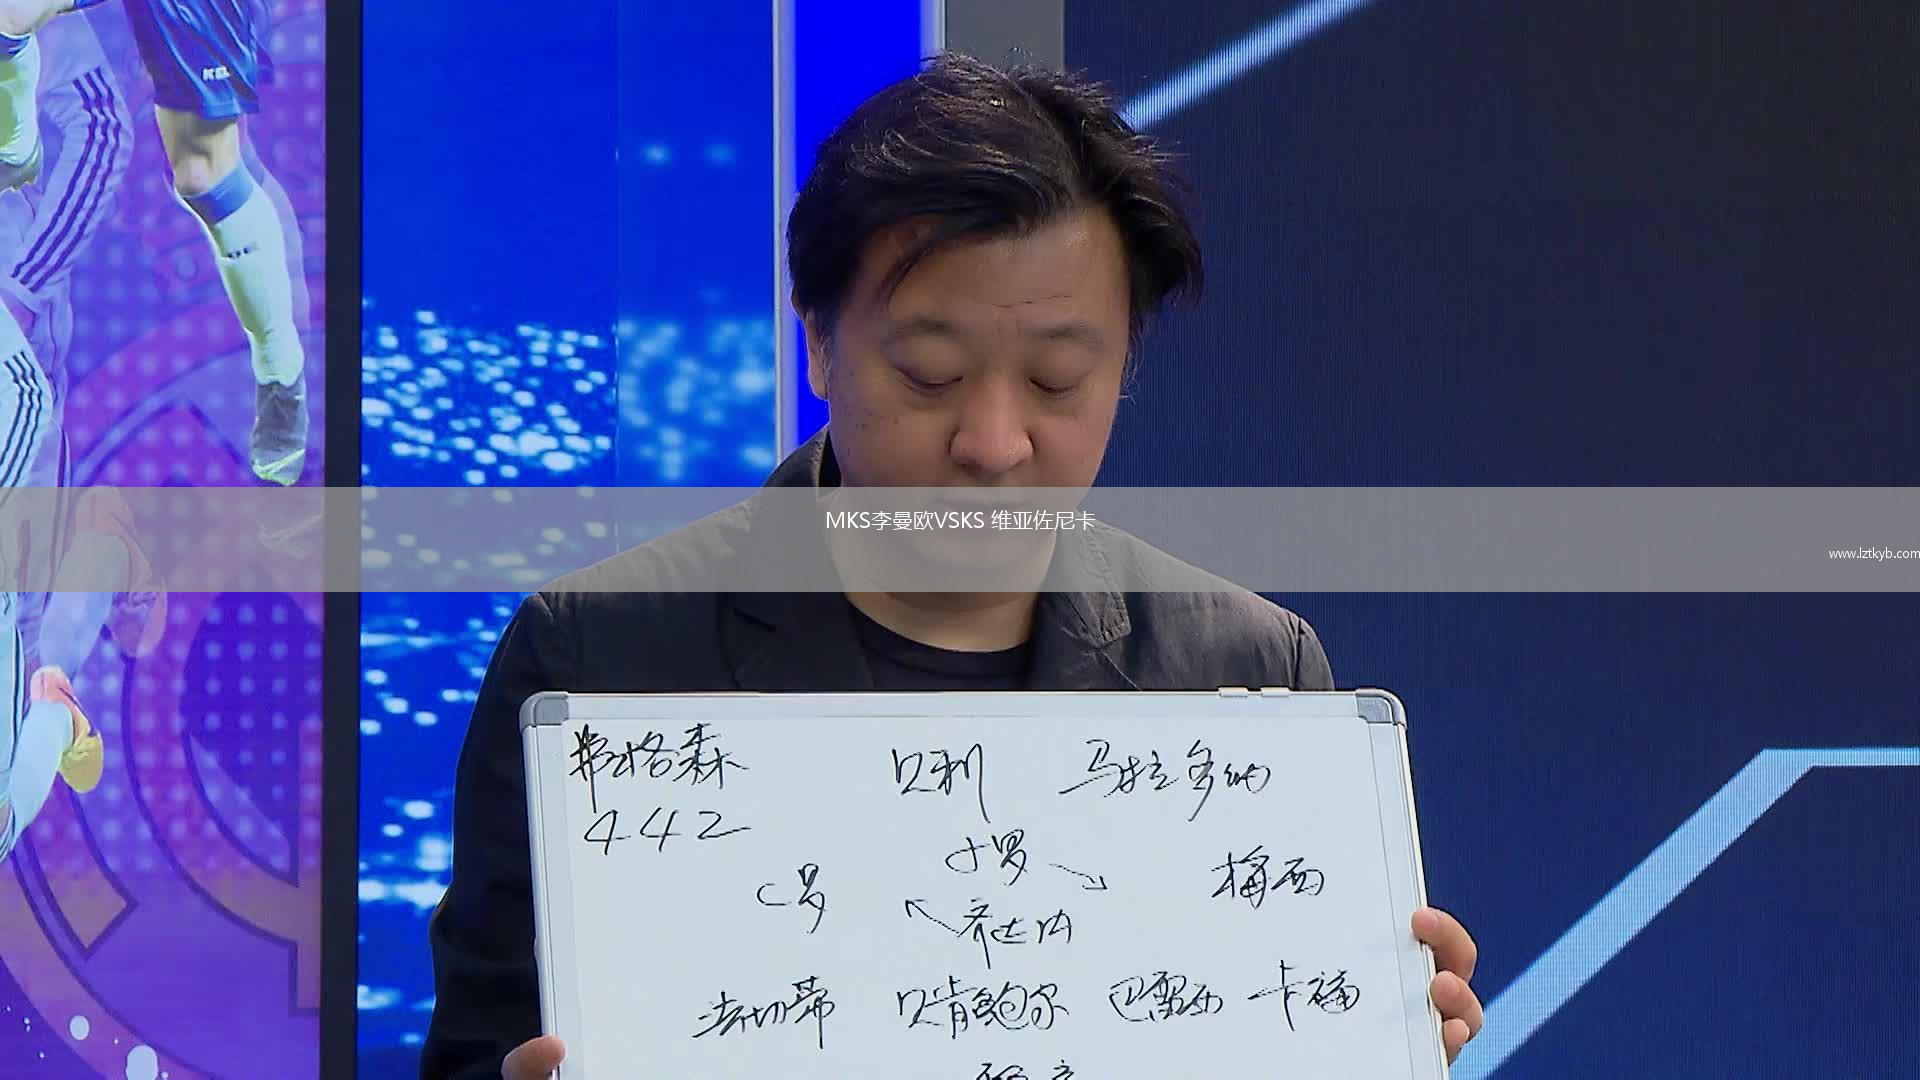 MKS李曼欧VSKS 维亚佐尼卡
www.lztkyb.com
弗格森 贝利 马拉多纳
442
大罗
C罗 梅西
齐达内
法切蒂 贝肯鲍尔 巴雷西 卡福